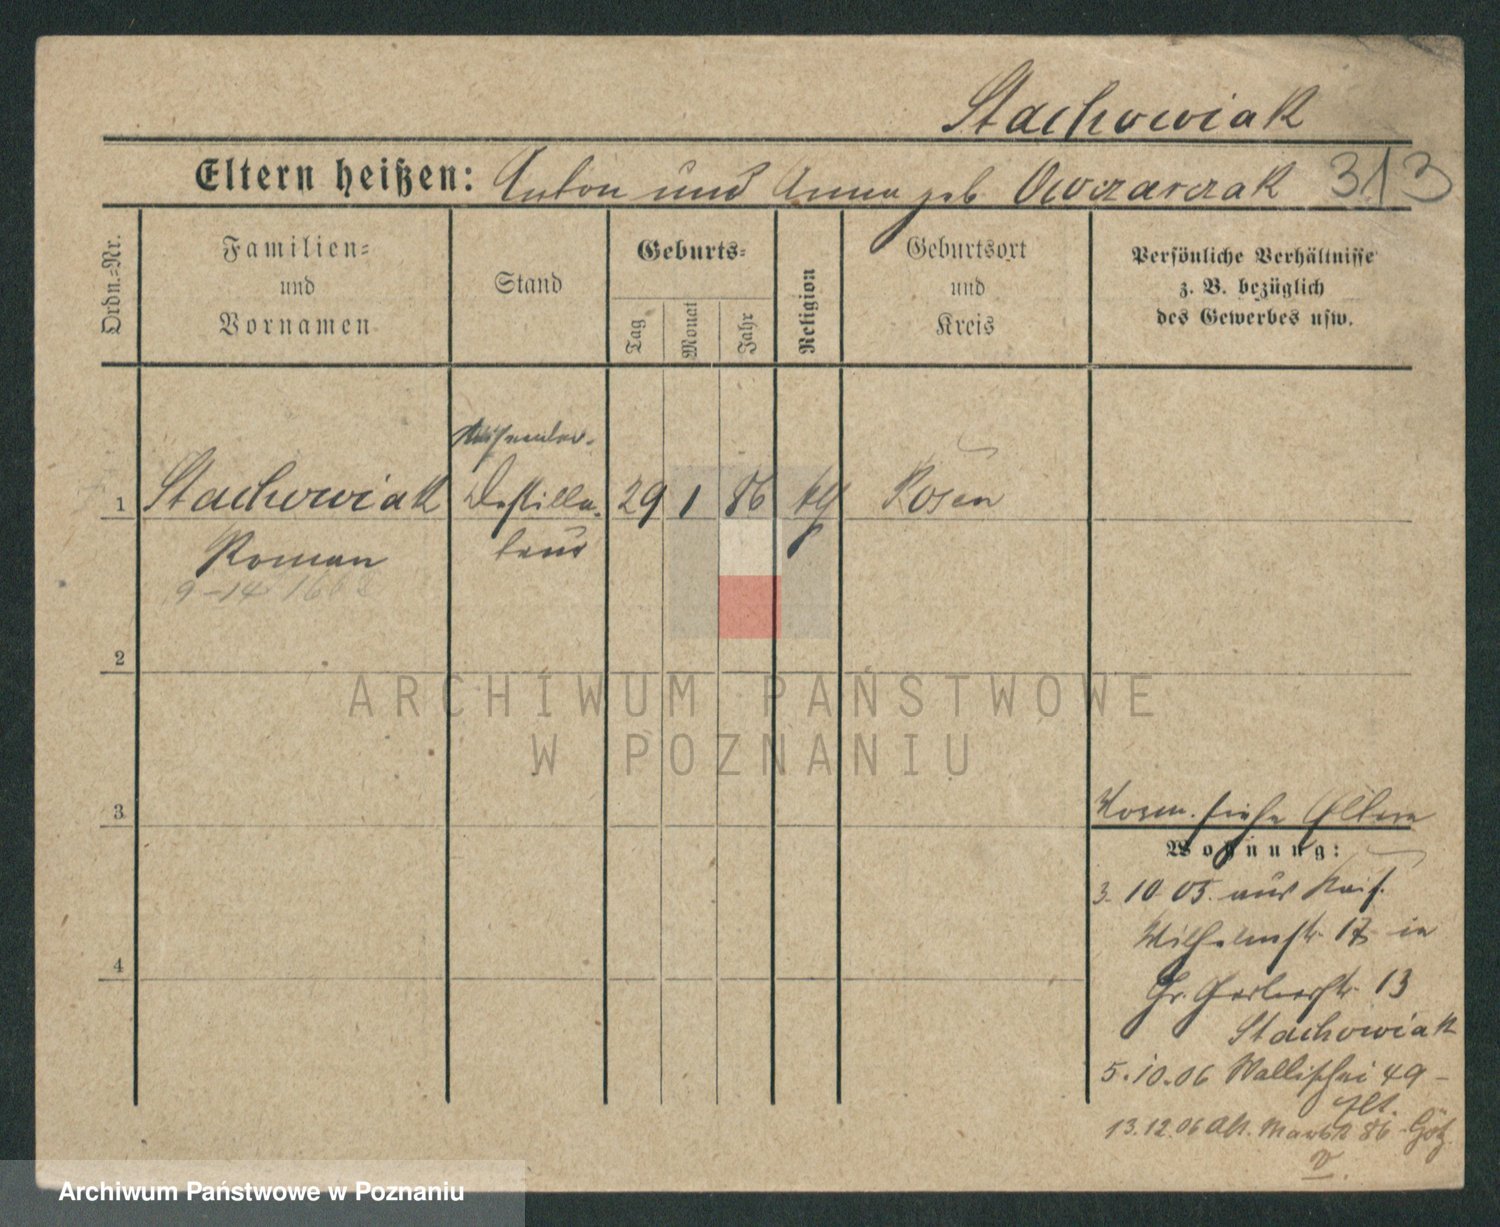 Stachowiak
Eltern heißen: Anton und Anna geb Owczarczak 313
Ordn.=Nr.
Familien=
und
Vornamen
Stand
Geburts=
Tag
Monat
Jahr
Religion
Geburtsort
und
Kreis
Persönliche Verhältnisse
z. B. bezüglich
des Gewerbes usw.
1 Stachowiak Destilla- 29 1 86 Posen
Roman teur
9-14
2
ARCHIWUM PAŃSTWOWE
W POZNANIU
3
siehe Eltern
Wohnung:
3. 10 05. aus Kais.
Wilhelmstr. 17 in
4
Gr. Gerberstr. 13
Stachowiak
5.10.06 Wallischei 49 -
13.12.06 Alt. Markt 86
Archiwum Państwowe w Poznaniu